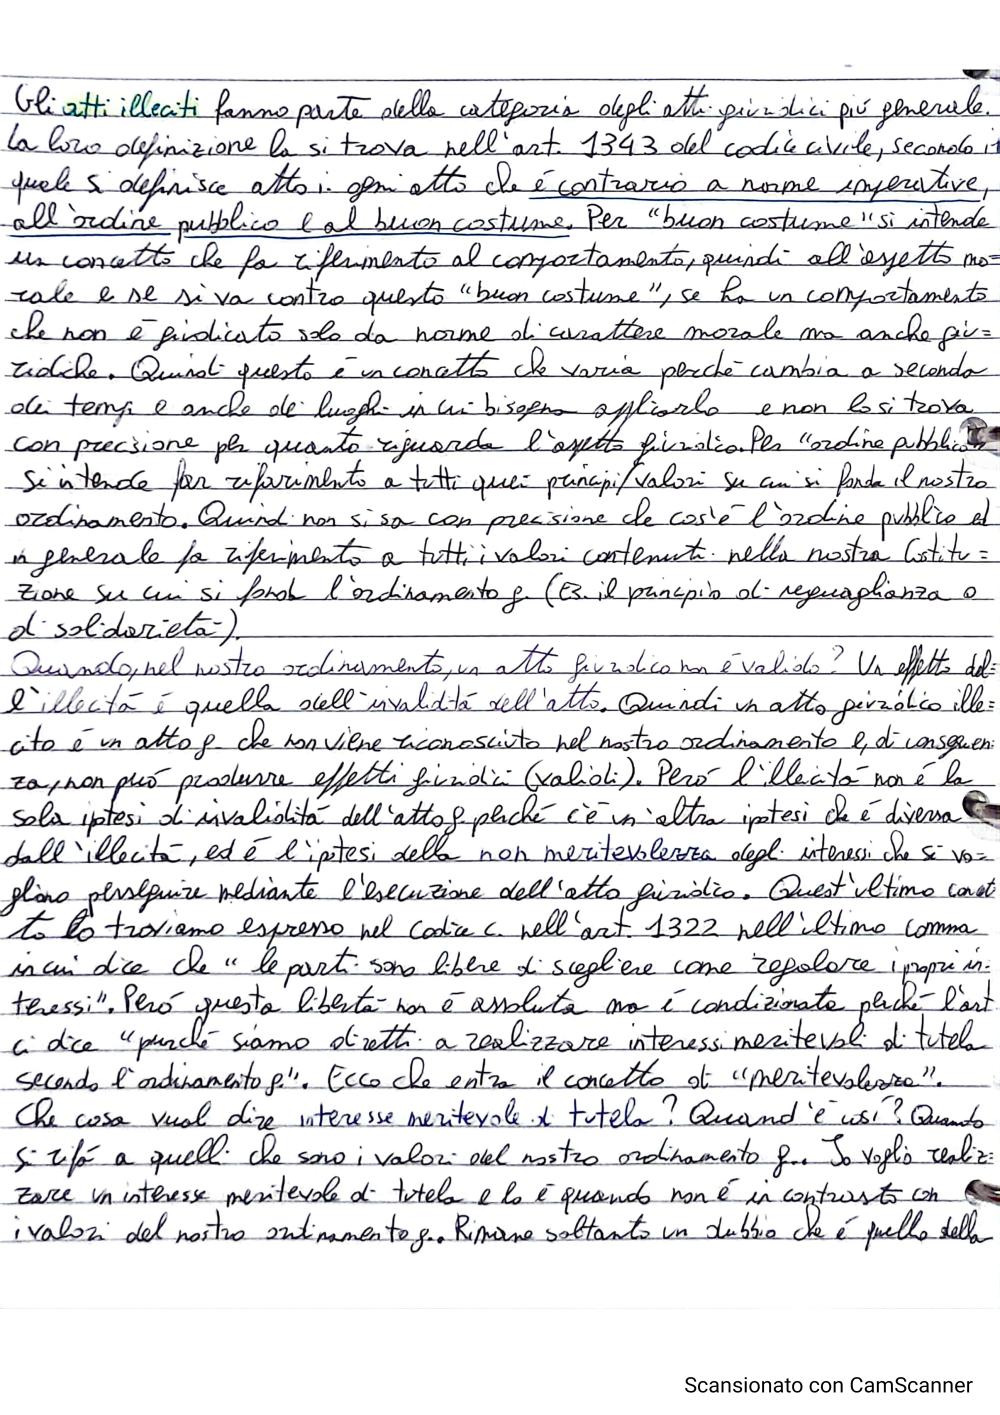 Gli atti illeciti fanno parte della categoria degli atti giuridici più generale.
La loro definizione la si trova nell'art. 1343 del codice civile, secondo il
quale si definisce atto i. ogni atto che è contrario a norme imperative,
all'ordine pubblico e al buon costume. Per "buon costume" si intende
un concetto che fa riferimento al comportamento, quindi all'aspetto mo=
rale e se si va contro questo "buon costume", se ha un comportamento
che non è giudicato solo da norme di carattere morale ma anche giu=
ridiche. Quindi questo è un concetto che varia perché cambia a seconda
dei tempi e anche dei luoghi in cui bisogna applicarlo e non lo si trova
con precisione per quanto riguarda l'aspetto giuridico. Per "ordine pubblico"
si intende far riferimento a tutti quei principi/valori su cui si fonda il nostro
ordinamento. Quindi non si sa con precisione che cos'è l'ordine pubblico ed
in generale fa riferimento a tutti i valori contenuti nella nostra Costitu=
zione su cui si fonda l'ordinamento g. (Es. il principio di reguaglianza o
di solidarietà).
Quando, nel nostro ordinamento, un atto giuridico non è valido? Un effetto del=
l'illecità è quella dell'invalidità dell'atto. Quindi un atto giuridico ille=
cito è un atto g. che non viene riconosciuto nel nostro ordinamento e, di conseguen=
za, non può produrre effetti giuridici (validi). Però l'illecità non è la
sola ipotesi di invalidità dell'atto g. perché c'è un'altra ipotesi che è diversa
dall'illecità, ed è l'ipotesi della non meritevolezza degli interessi che si vo=
gliono perseguire mediante l'esecuzione dell'atto giuridico. Quest'ultimo concet
to lo troviamo espresso nel Codice c. nell'art. 1322 nell'ultimo comma
in cui dice che "le parti sono libere di scegliere come regolare i propri in-
teressi". Però questa libertà non è assoluta ma è condizionata perché l'art
ci dice "purché siamo diretti a realizzare interessi meritevoli di tutela
secondo l'ordinamento g.". Ecco che entra il concetto di "meritevolezza".
Che cosa vuol dire interesse meritevole di tutela? Quand'è così? Quando
si rifà a quelli che sono i valori del nostro ordinamento g.. Io voglio realiz=
zare un interesse meritevole di tutela e lo è quando non è in contrasto con
i valori del nostro ordinamento g.. Rimane soltanto un dubbio che è quello della
Scansionato con CamScanner